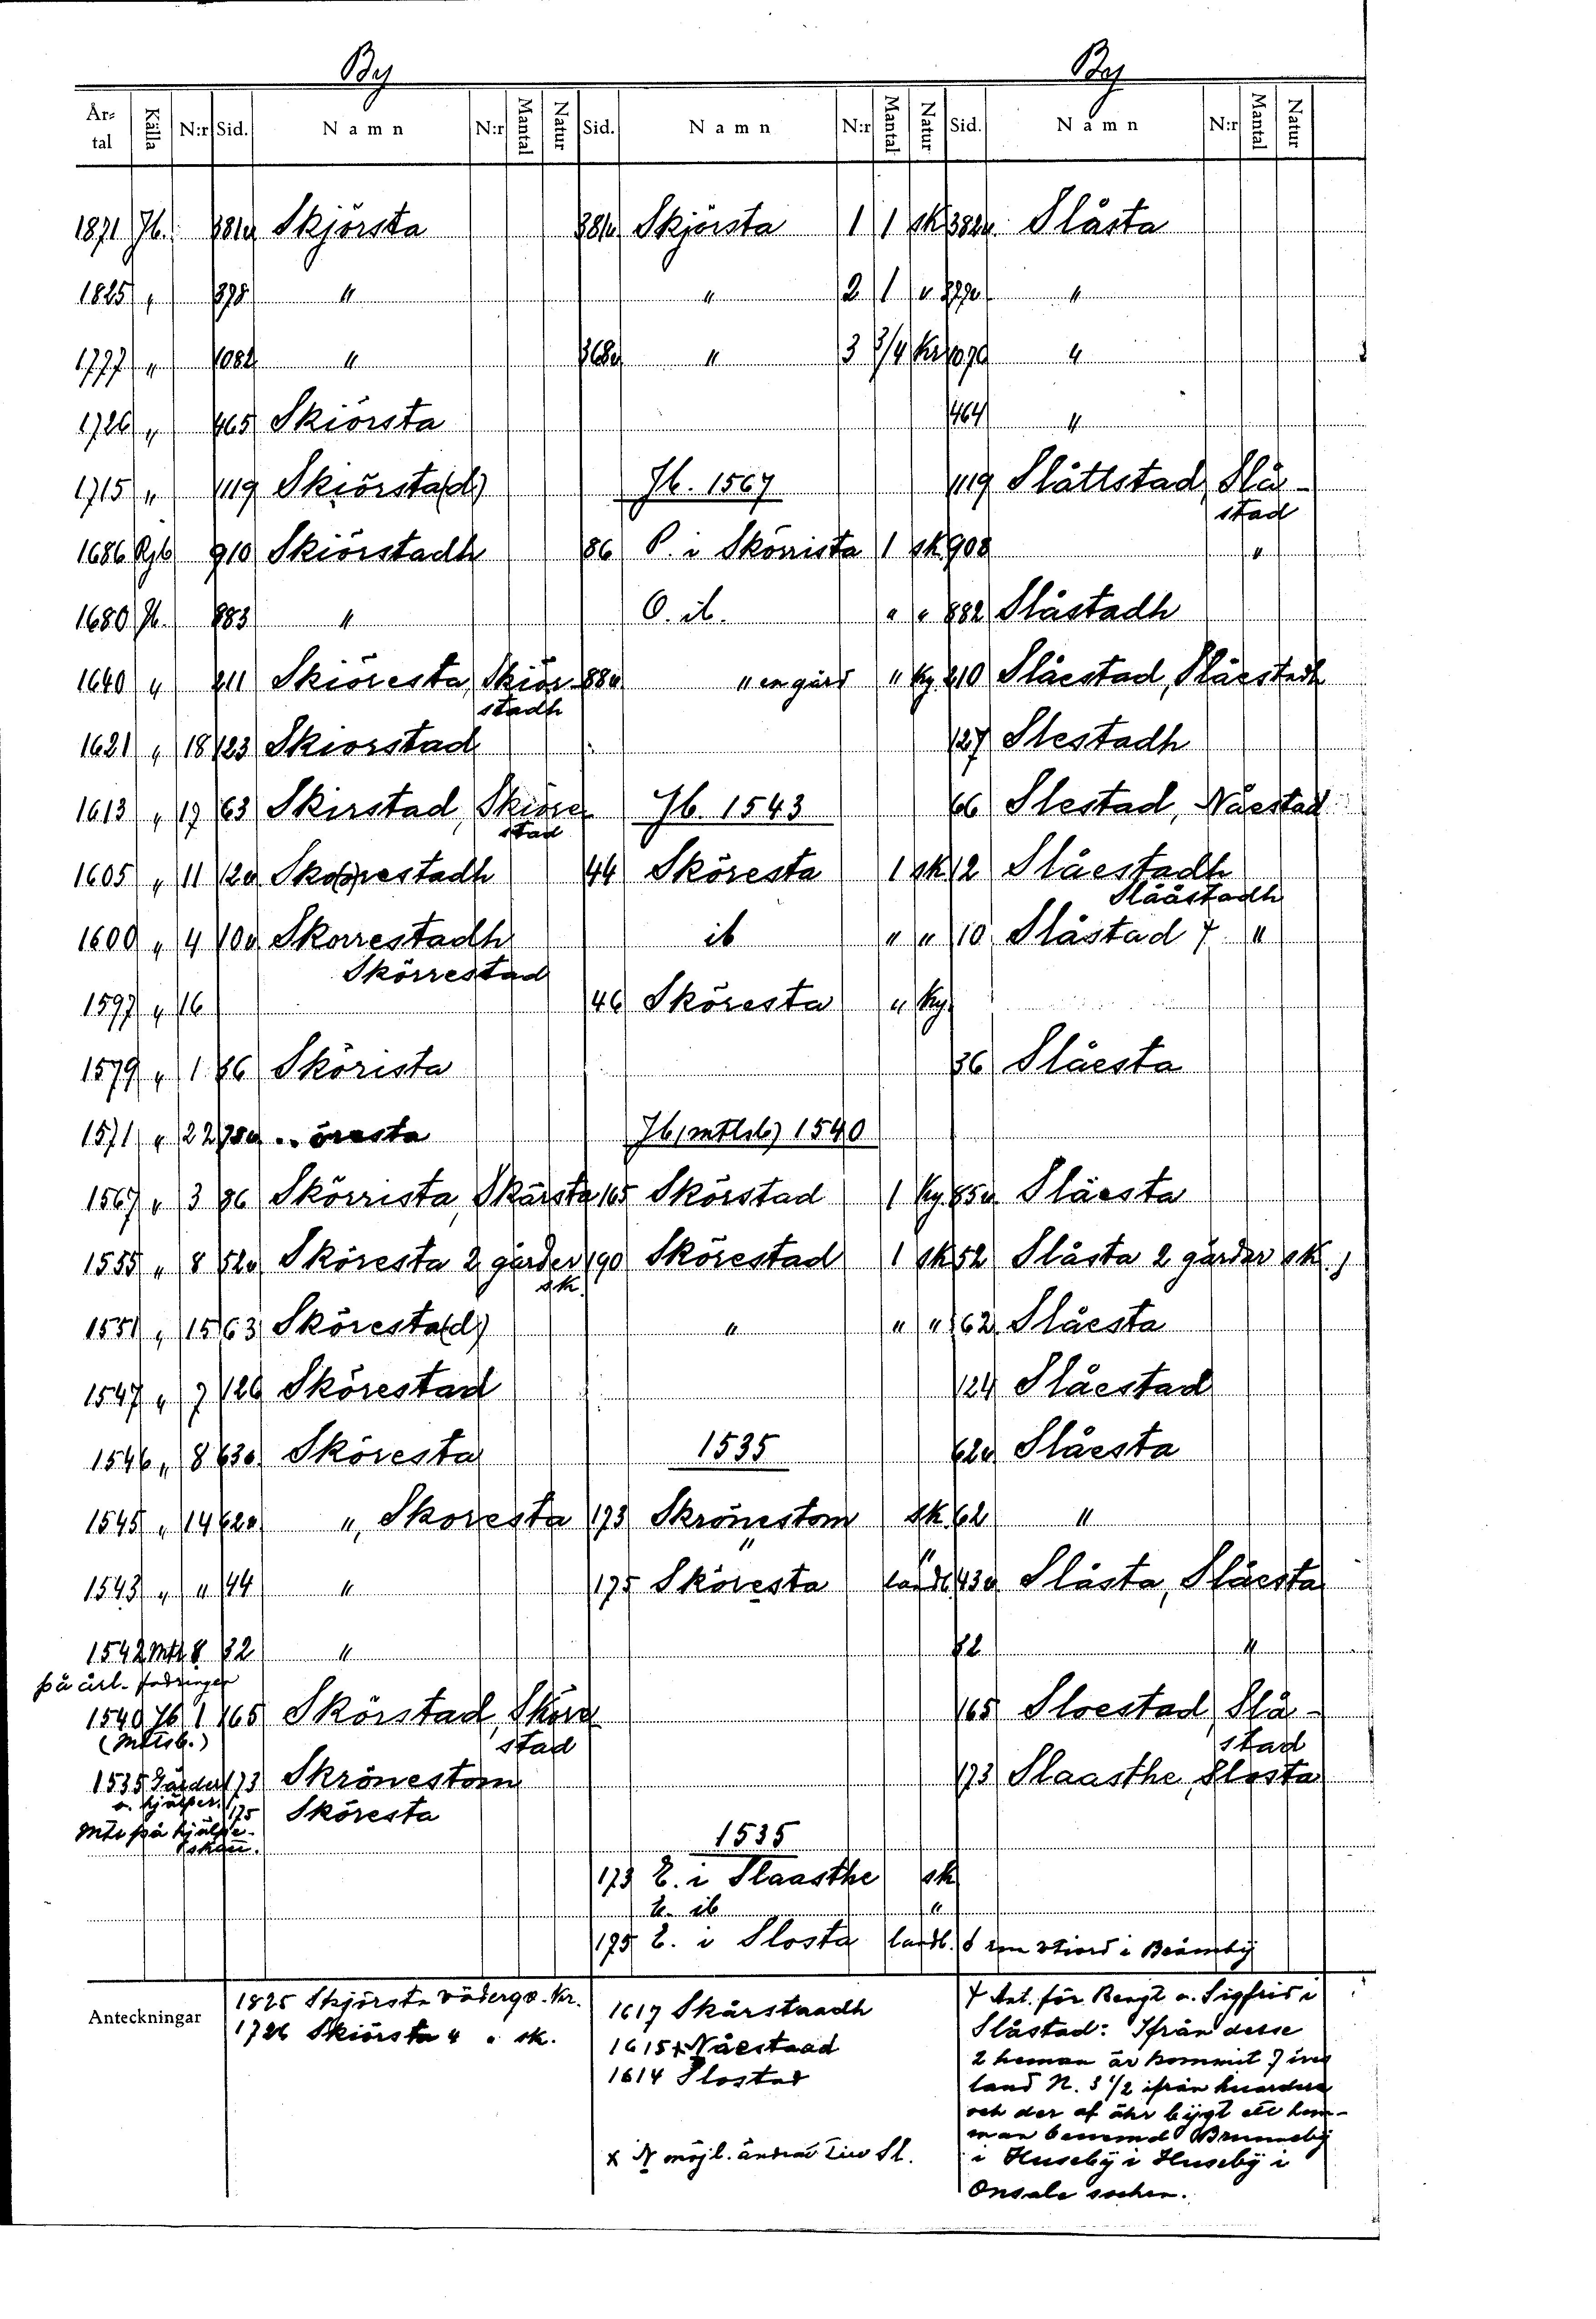 By By
År-tal Källa N:r Sid. Namn N:r Mantal Natur Sid. Namn N:r Mantal Natur Sid. Namn N:r Mantal Natur
1871 Jb. 381v Skjörsta 381v Skjörsta 1 1 sk 382v Slåsta
1825 " 378 " " 2 1 " "
1777 " 1082 " 368v " 3 3/4 Kr 1079 "
1726 " 465 Skiörsta 464 "
1715 " 1119 Skiörsta(d) Jb. 1567 1119 Slåttstad Slå-
stad
1686 Rjb 910 Skiörstadh 86 P. i Skörrista 1 sk 908 "
1680 Jb. 883 " O. ib. " " 882 Slåstadh
1640 " 211 Skiöresta, Skiör- 88v " en gård " Ky 210 Slåestad, Slåestadh
stadh
1621 " 18 123 Skiorstad 127 Slestadh
1613 " 17 63 Skirstad, Skiöre Jb. 1543 66 Slestad, Nåestad
stad
1605 " 11 12v Sko(ö)restadh 44 Sköresta 1 sk 12 Slåestadh
Slååstadh
1600 " 4 10v Skorrestadh ib " " 10 Slåstad "
Skörrestad
1597 " 16 46 Sköresta " Ky
1579 " 1 86 Skörista 36 Slåesta
1571 " 22 78v .. öresta Jb (mtlsb) 1540
1567 " 3 86 Skörrista, Skärsta 165 Skörstad 1 Ky 85v Slåesta
1555 " 8 52v Sköresta 2 gårder 190 Skörestad 1 sk 52 Slåsta 2 gårder sk
sk.
1551 " 15 63 Sköresta(d) " " " 62 Slåesta
1547 " 7 126 Skörestad 124 Slåestad
1546 " 8 63v Sköresta 1535 62v Slåesta
1545 " 14 62v ", Skoresta 173 Skrönestom sk 62 "
" "
1543 " " 44 " 175 Sköresta landb. 43v Slåsta, Slåesta
1542 Mtl 8 32 " 32 "
på årl. fodringen
1540 Jb 1 165 Skörstad, Sköre 165 Sloestad, Slå-
(Mtlsb.) stad stad
1535 Gärder 173 Skrönestom 173 Slaasthe, Slosta
o. hjälper.
175 Sköresta
Mtl på hjälpe-
skatt.
1535
173 E. i Slaasthe sk
E. ib "
175 E. i Slosta landb. i Brämby
Anteckningar
1825 Skjörsta Kr.
1726 Skiörsta " " sk.
1617 Skårstaadh
1615 x Nåestaad
1614 Slostad
x N möjl. ändrat till Sl.
Ant. för Bengt o. Sigfrid i
Slåstad: Ifrån desse
2 heman är kommit
land N. 3 1/2 ifrån huardera
och der af ähr bijgt ett hem-
man benemd Brunneby
i Huseby i Huseby i
Onsale sochen.